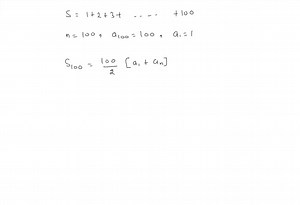 S = 1+2+3+ ..... +100
n = 100, a₁₀₀ = 100, a₁ = 1
S₁₀₀ = 100/2 [a₁ + aₙ]